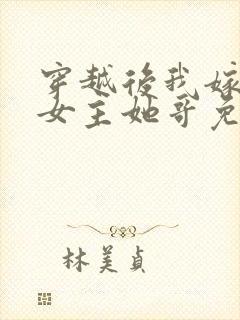 穿越後我嫁
女主她哥免
林美貞